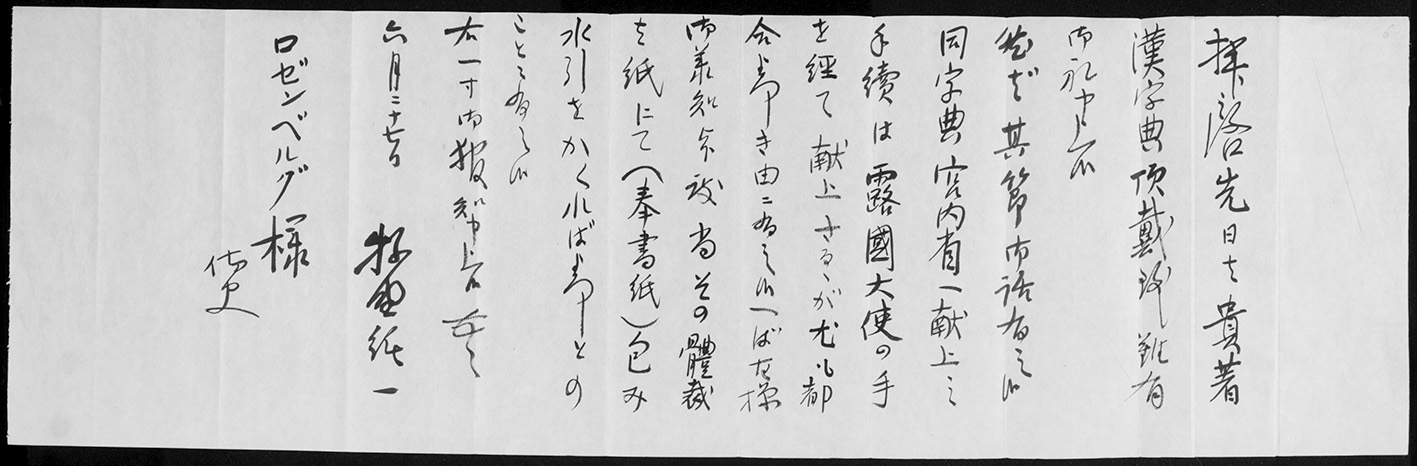 拝啓 先日は貴著
漢字典頂戴致 難有
御礼申上候
然ば其節御話有之候
同字典宮内省へ献上之
手続は露國大使の手
を経て献上するが尤も都
合宜き由ニ有之候へば左様
御承知
尚その體裁
は紙にて(奉書紙)包み
水引をかくれば宜しとの
ことニ有之候
右一寸御報知申上候
六月二十七日
ロゼンベルグ様
侍史